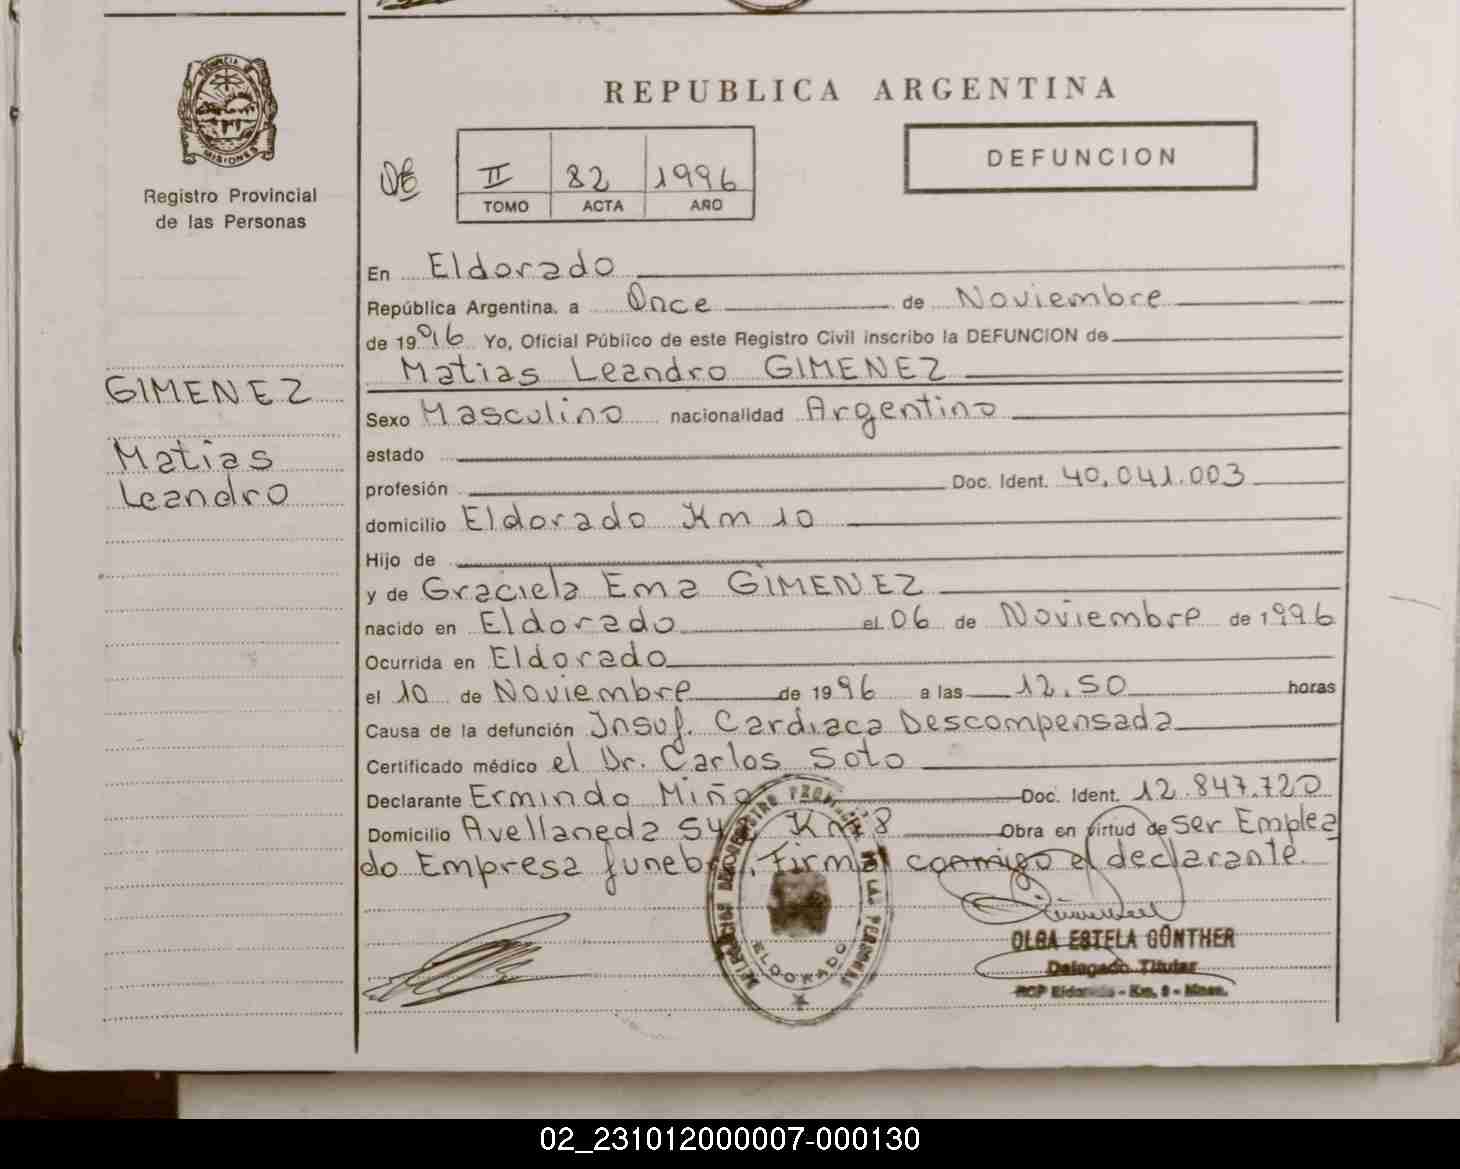 PROVINCIA DE
MISIONES
Registro Provincial
de las Personas
GIMENEZ
Matias
Leandro
REPUBLICA ARGENTINA
DEFUNCION
II 82 1996
TOMO ACTA AÑO
En Eldorado
República Argentina, a Once de Noviembre
de 1996 Yo, Oficial Público de este Registro Civil inscribo la DEFUNCION de
Matias Leandro GIMENEZ
Sexo Masculino nacionalidad Argentino
estado
profesión Doc. Ident. 40.041.003
domicilio Eldorado Km 10
Hijo de
y de Graciela Ema GIMENEZ
nacido en Eldorado el 06 de Noviembre de 1996
Ocurrida en Eldorado
el 10 de Noviembre de 1996 a las 12.50 horas
Causa de la defunción Insuf. Cardiaca Descompensada
Certificado médico el Dr. Carlos Soto
Declarante Ermindo Miño Doc. Ident. 12.847.720
Domicilio Avellaneda Km 8 Obra en virtud de ser Emplea
do Empresa funebre, Firma conmigo el declarante.
ELDORADO
OLGA ESTELA GÜNTHER
Delegado Titular
RCP Eldorado - Km. 9 - Mnes.
02_231012000007-000130